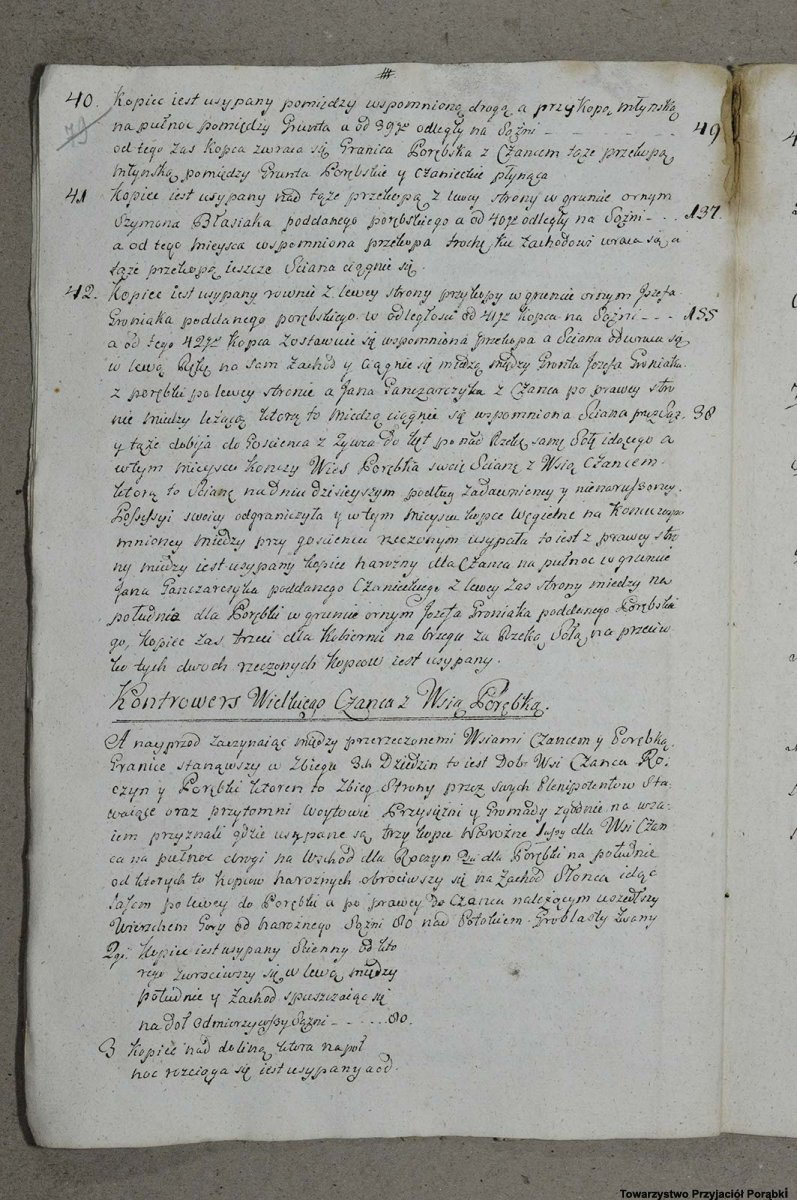 40. Kopiec iest usypany pomiędzy wspomnioną drogą a przykopą Młynską
79
na pułnoc pomiędzy Grunta a od 39go odległy na Sążni - - - - - 49
od tego zas Kopca zwraca się Granica Porębska z Czancem tąże przekopą
Młynską pomiędzy Grunta Porębskie y Czanieckie płynąca
41 Kopiec iest usypany nad tąże przekopą z lewey strony w gruncie ornym
Szymona Błasiaka poddanego porębskiego a od 40go odległy na Sążni - - - 137.
a od tego mieysca wspomniona przekopa trochę ku zachodowi wraca się a
tąże przekopą ieszcze Sciana ciągnie się.
42. Kopiec iest usypany rownie z lewey strony przykopy w gruncie ornym Jozefa
Groniaka poddanego porębskiego w odległosci od 41go Kopca na Sążni - - - 155
a od tego 42go Kopca zostawuie się wspomniona przekopa a Sciana odwraca się
w lewą Rękę na sam zachod y ciągnie się miedzą między Grunta Jozefa Groniaka
z porębki po lewey stronie a Jana Panczarczyka z Czanca po prawey stro
nie miedzy leżącą ktorą to miedzą ciągnie się wspomniona Sciana przez Sąż. 38
y tąże dobija do Goscienca z Zywca do Kęt ponad Rzekę samę Sołę idącego a
w tym mieyscu konczy Wies Porębka swoię Scianę z Wsią Czancem.
ktorą to Scianę na dniu dzisieyszym podług zadawnioney y nienaruszoney
Possessyi swoiey odgraniczyła y w tym mieyscu kopce węgielne na koncu wspo
mnioney miedzy przy goscieńcu rzeczonym usypała to iest z prawey stro
ny miedzy iest usypany kopiec narozny dla Czanca na pułnoc w gruncie
Jana Panczarczyka poddanego Czanieckiego z lewey zas strony miedzy na
południe dla Porębki w gruncie ornym Jozefa Groniaka poddanego Porębskie
go, kopiec zas trzeci dla Kobiernic na brzegu za Rzeką Sołą na przeciw
ko tych dwoch rzeczonych kopcow iest usypany.
Kontrowers Wielkiego Czanca z Wsią Porębką.
A nayprzod zaczynaiąc między przerzeczonemi Wsiami Czancem y Porębką
Granice stanąwszy w zbiegu 3ch Dziedzin to iest Dobr Wsi Czanca Ro-
czyn y Porębki ktoren to zbieg Strony przez swych Plenipotentow sta-
waiące oraz przytomni Woytowie Przysiężni y Gromady zgodnie na wza-
iem przyznali gdzie usypane są trzy kopce Narozne 1szy dla Wsi Czan
ca na pułnoc drogi na Wschod dla Roczyn 3ci dla Porębki na południe
od ktorych to kopcow naroznych obrociwszy się na Zachod Słonca idąc
lasem po lewey do Porębki a po prawey do Czanca należącym uszedłszy
Wierzchem Gory od narożnego Sążni 80 nad Potokiem Groblasty zwany
2gi Kopiec iest usypany Scienny od kto
rego zwrociwszy się w lewą między
południe y zachod spuszczaiąc się
na doł odmierzywszy Sążni - - - - - 80.
3 Kopiec nad doliną ktora na poł
noc rozciąga się iest usypany a od.
Towarzystwo Przyjaciół Porąbki